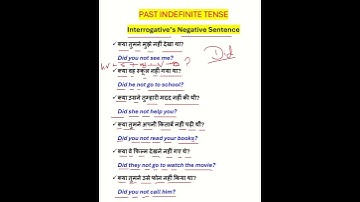 PAST INDEFINITE TENSE
Interrogative's Negative Sentence
✓ क्या तुमने मुझे नहीं देखा था?
Did you not see me?
Did
✓ क्या वह स्कूल नहीं गया था?
Did he not go to school?
✓ क्या उसने तुम्हारी मदद नहीं की थी?
Did she not help you?
✓ क्या तुमने अपनी किताबें नहीं पढ़ी थी?
Did you not read your books?
✓ क्या वे फिल्म देखने नहीं गए थे?
Did they not go to watch the movie?
✓ क्या तुमने उसे फोन नहीं किया था?
Did you not call him?